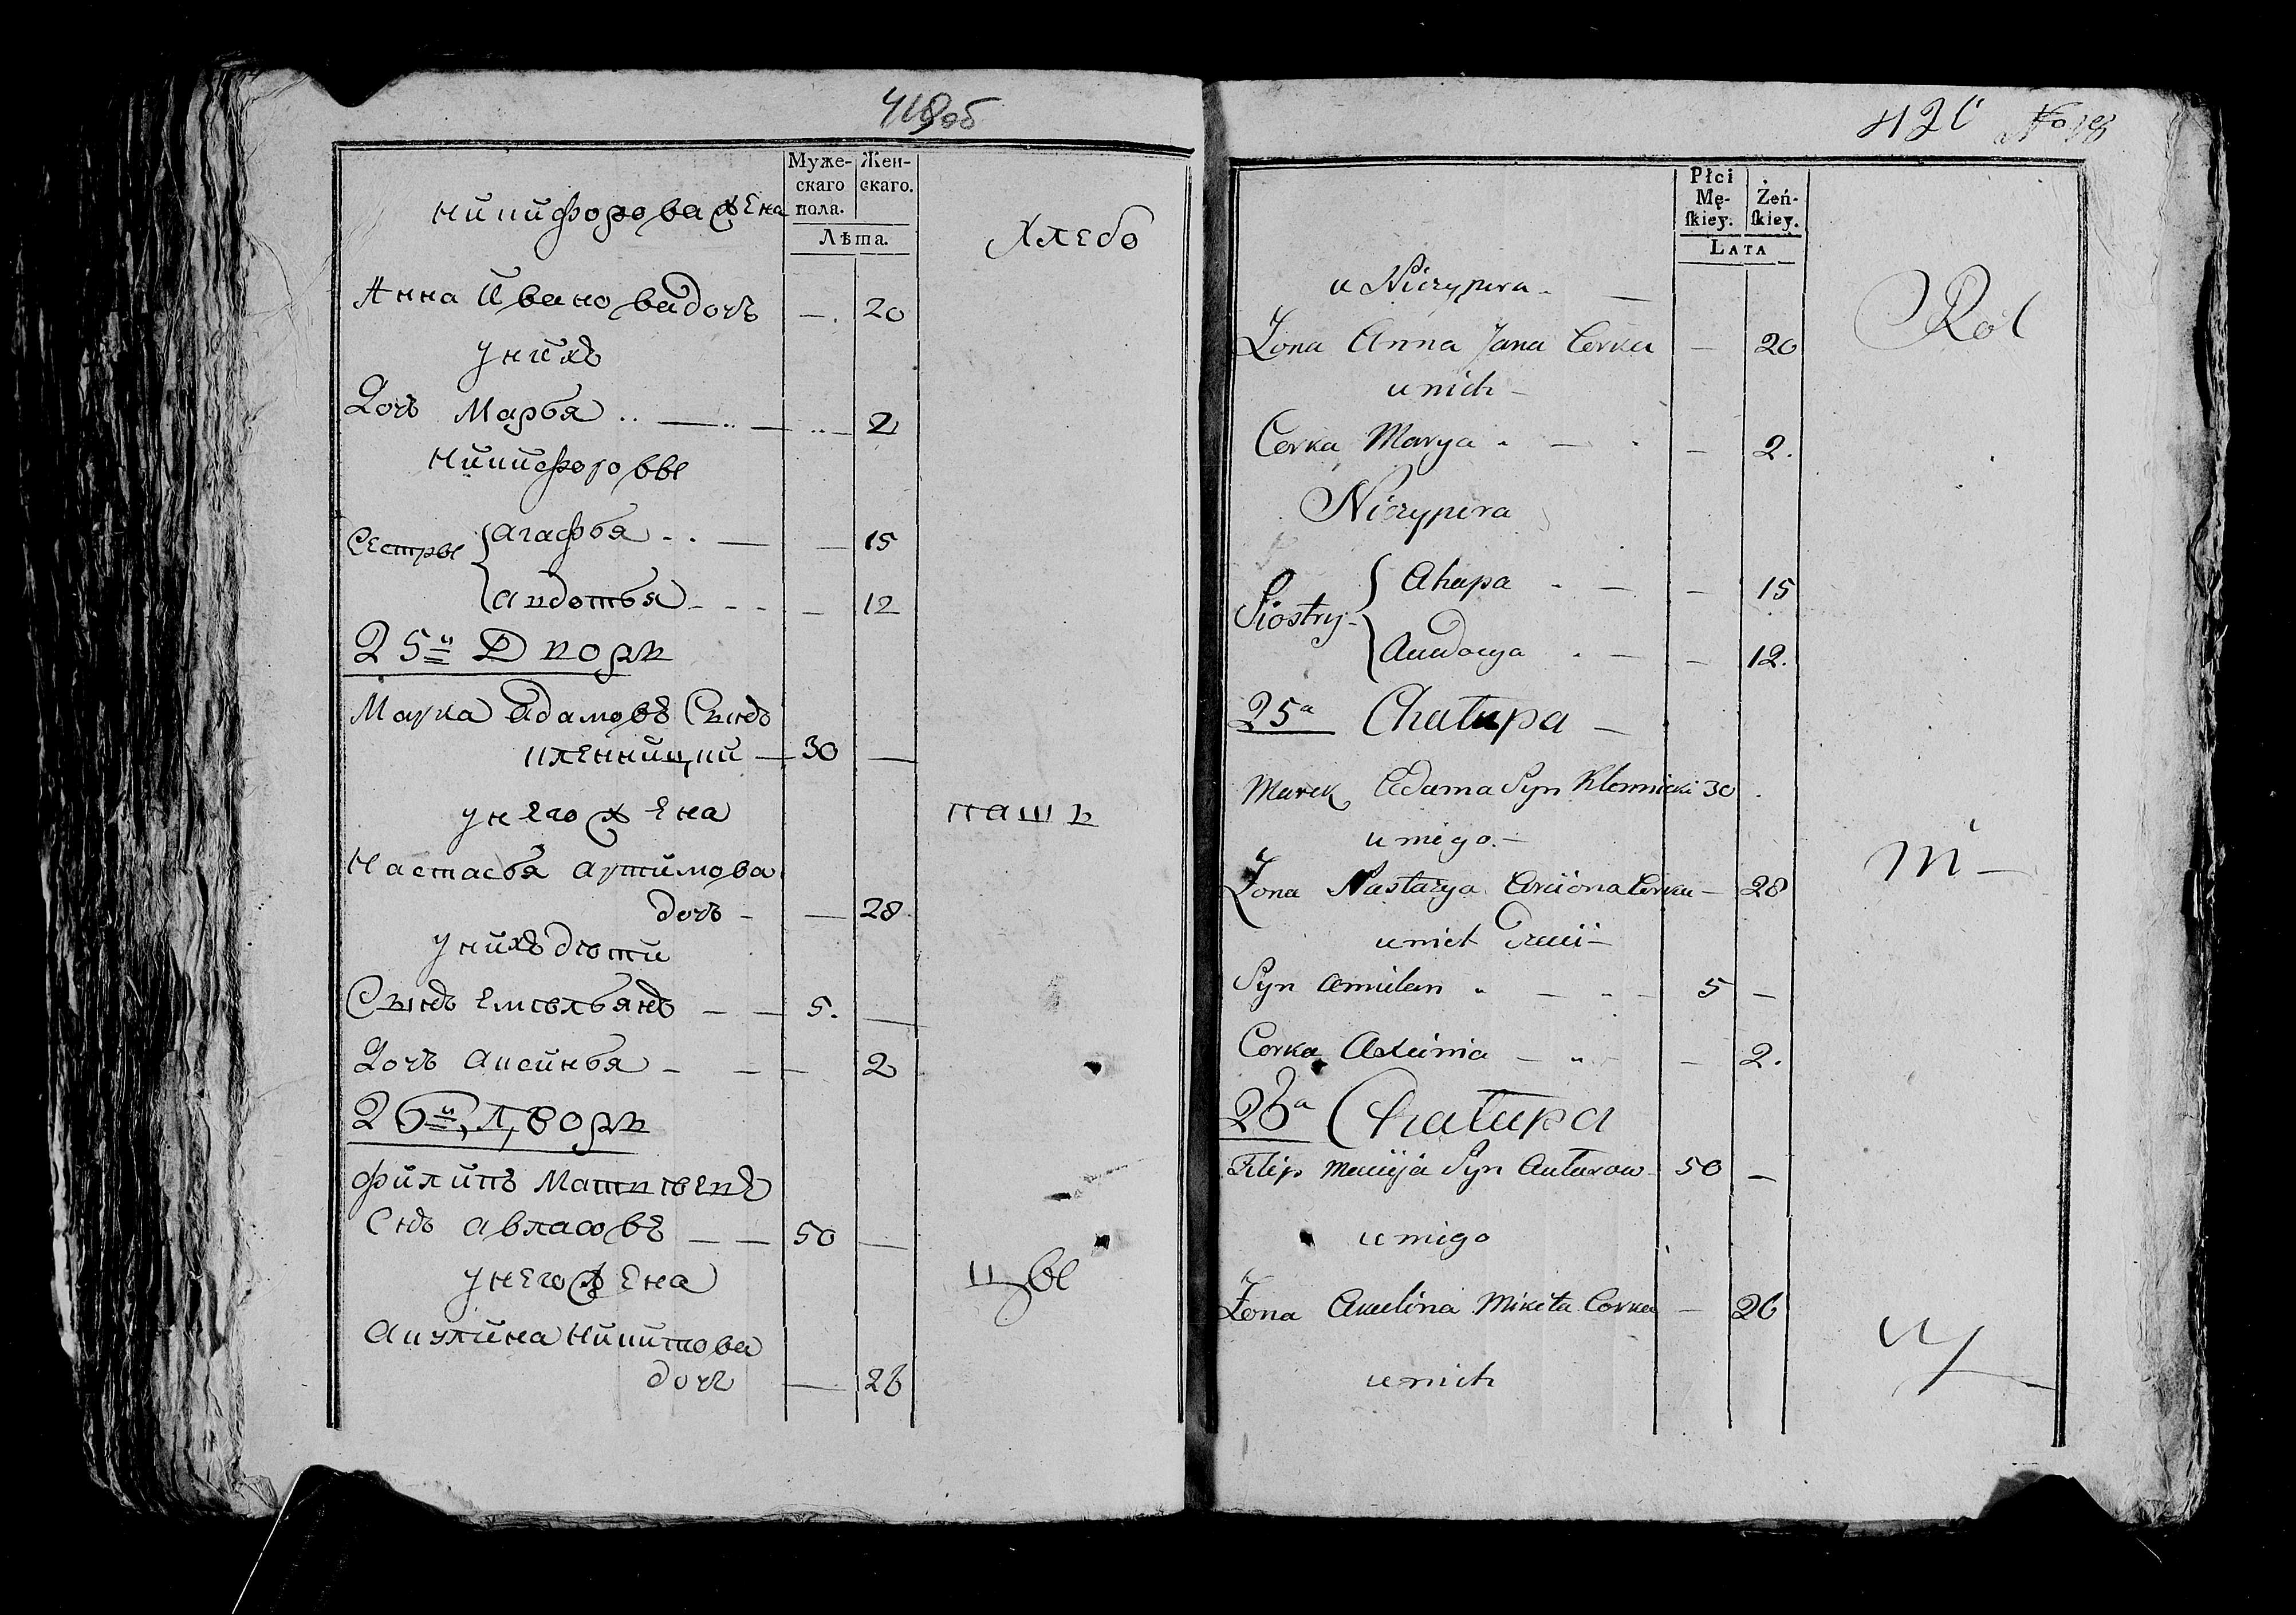 419об
Муже-
скаго
пола.
Жен-
скаго.
Лѣта.
Никифорова жена
Хлебо
Анна Иванова дочь — 20
у нихъ
Дочь Марья — 2
Никифоровы
Сестры
Агафья — 15
Авдотья — 12
25й Дворъ
Марка Адамовъ Сынъ
30 —
у него жена
пашъ
Настасья Артимова
дочь — 28
у нихъ дѣти
Сынъ Емѣльянъ — 5. —
Дочь Аксинья — 2
26й Дворъ
Филипъ Матвѣевъ
Снъ Авласовъ — 50 —
у него жена
цы
Акулина Никитова
дочь — 26
420
No
Płci
Mę-
ſkiey.
Żeń-
ſkiey.
LATA
u Niczypira —
Rol
Żona Anna Jana Corka — 20
u nich —
Corka Marya — 2.
Niczypira
Siostry
Ahapa — 15
Audocya — 12.
25a Chałupa —
Marek Adama Syn 30
u niego. —
Żona Nastazya Corka — 28
u nich Dzieci —
Syn Amilan — 5 —
Corka Axiinia — 2.
26a Chałupa
Filip Macieja Syn 50 —
u niego
Żona Akulina Mikita Corka — 26
u nich